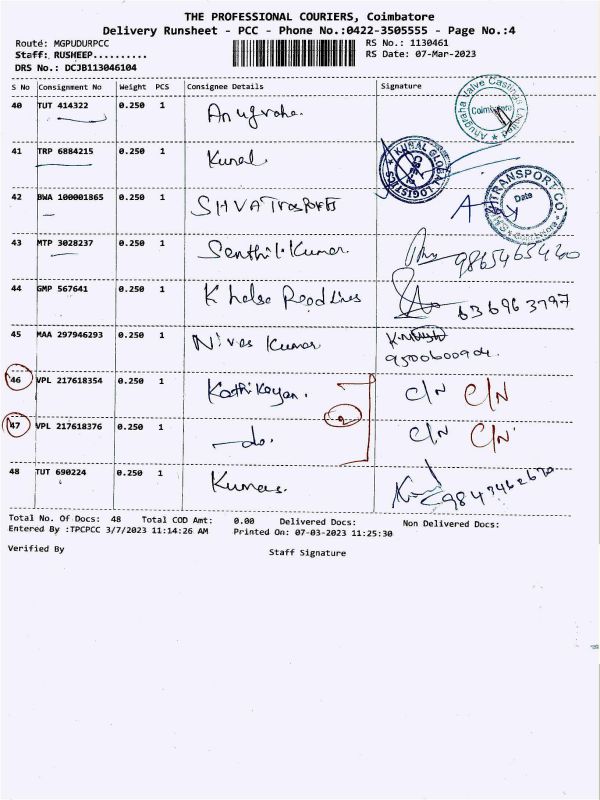 THE PROFESSIONAL COURIERS, Coimbatore
Delivery Runsheet - PCC - Phone No.:0422-3505555 - Page No.:4
Route: MGPUDURPCC
RS No.: 1130461
Staff: RUSHEEP..........
RS Date: 07-Mar-2023
DRS No.: DCJB113046104
S No Consignment No Weight PCS Consignee Details Signature
40 TUT 414322 0.250 1 Anugraha.
Anugraha Valve Castings Limited
Coimbatore
41 TRP 6884215 0.250 1 Kunal
KUNAL GLOBAL LOGISTICS
CBE
42 BWA 100001865 0.250 1
TRANSPORT CO.
Date
Coimbatore
43 MTP 3028237 0.250 1 Senthil.Kumar. 9865465460
44 GMP 567641 0.250 1
45 MAA 297946293 0.250 1 Nivas Kumar
46 VPL 217618354 0.250 1 C/N C/N
2
47 VPL 217618376 0.250 1 -do. C/N C/N
48 TUT 690224 0.250 1
Total No. Of Docs: 48 Total COD Amt: 0.00 Delivered Docs: Non Delivered Docs:
Entered By :TPCPCC 3/7/2023 11:14:26 AM Printed On: 07-03-2023 11:25:30
Verified By Staff Signature